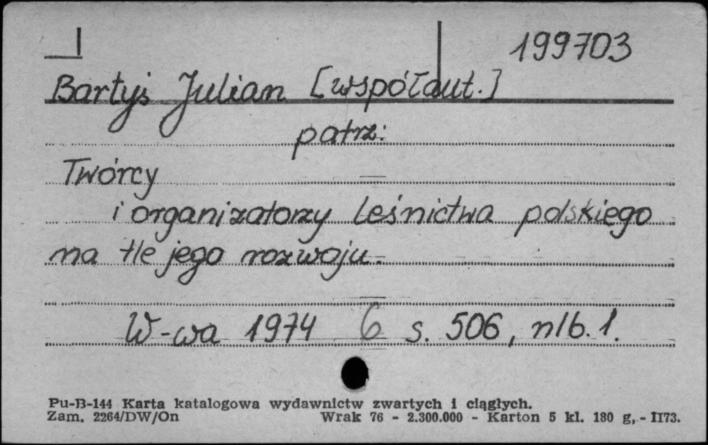 199703
Bartyś Julian [współaut.]
patrz:
Twórcy
i organizatorzy leśnictwa polskiego
na tle jego rozwoju.
W-wa 1974 6 s. 506, nlb. 1.
Pu-B-144 Karta katalogowa wydawnictw zwartych i ciągłych.
Zam. 2264/DW/On Wrak 76 - 2.300.000 - Karton 5 kl. 180 g, - II73.